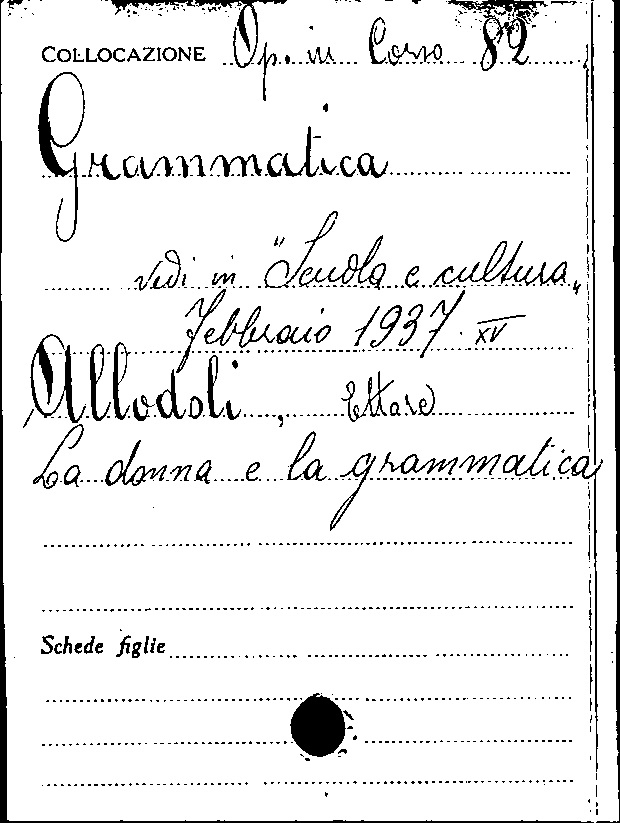 COLLOCAZIONE Op. in Corso 82
Grammatica
vedi in "Scuola e cultura„
Febbraio 1937. XV
Allodoli, Ettore
La donna e la grammatica
Schede figlie